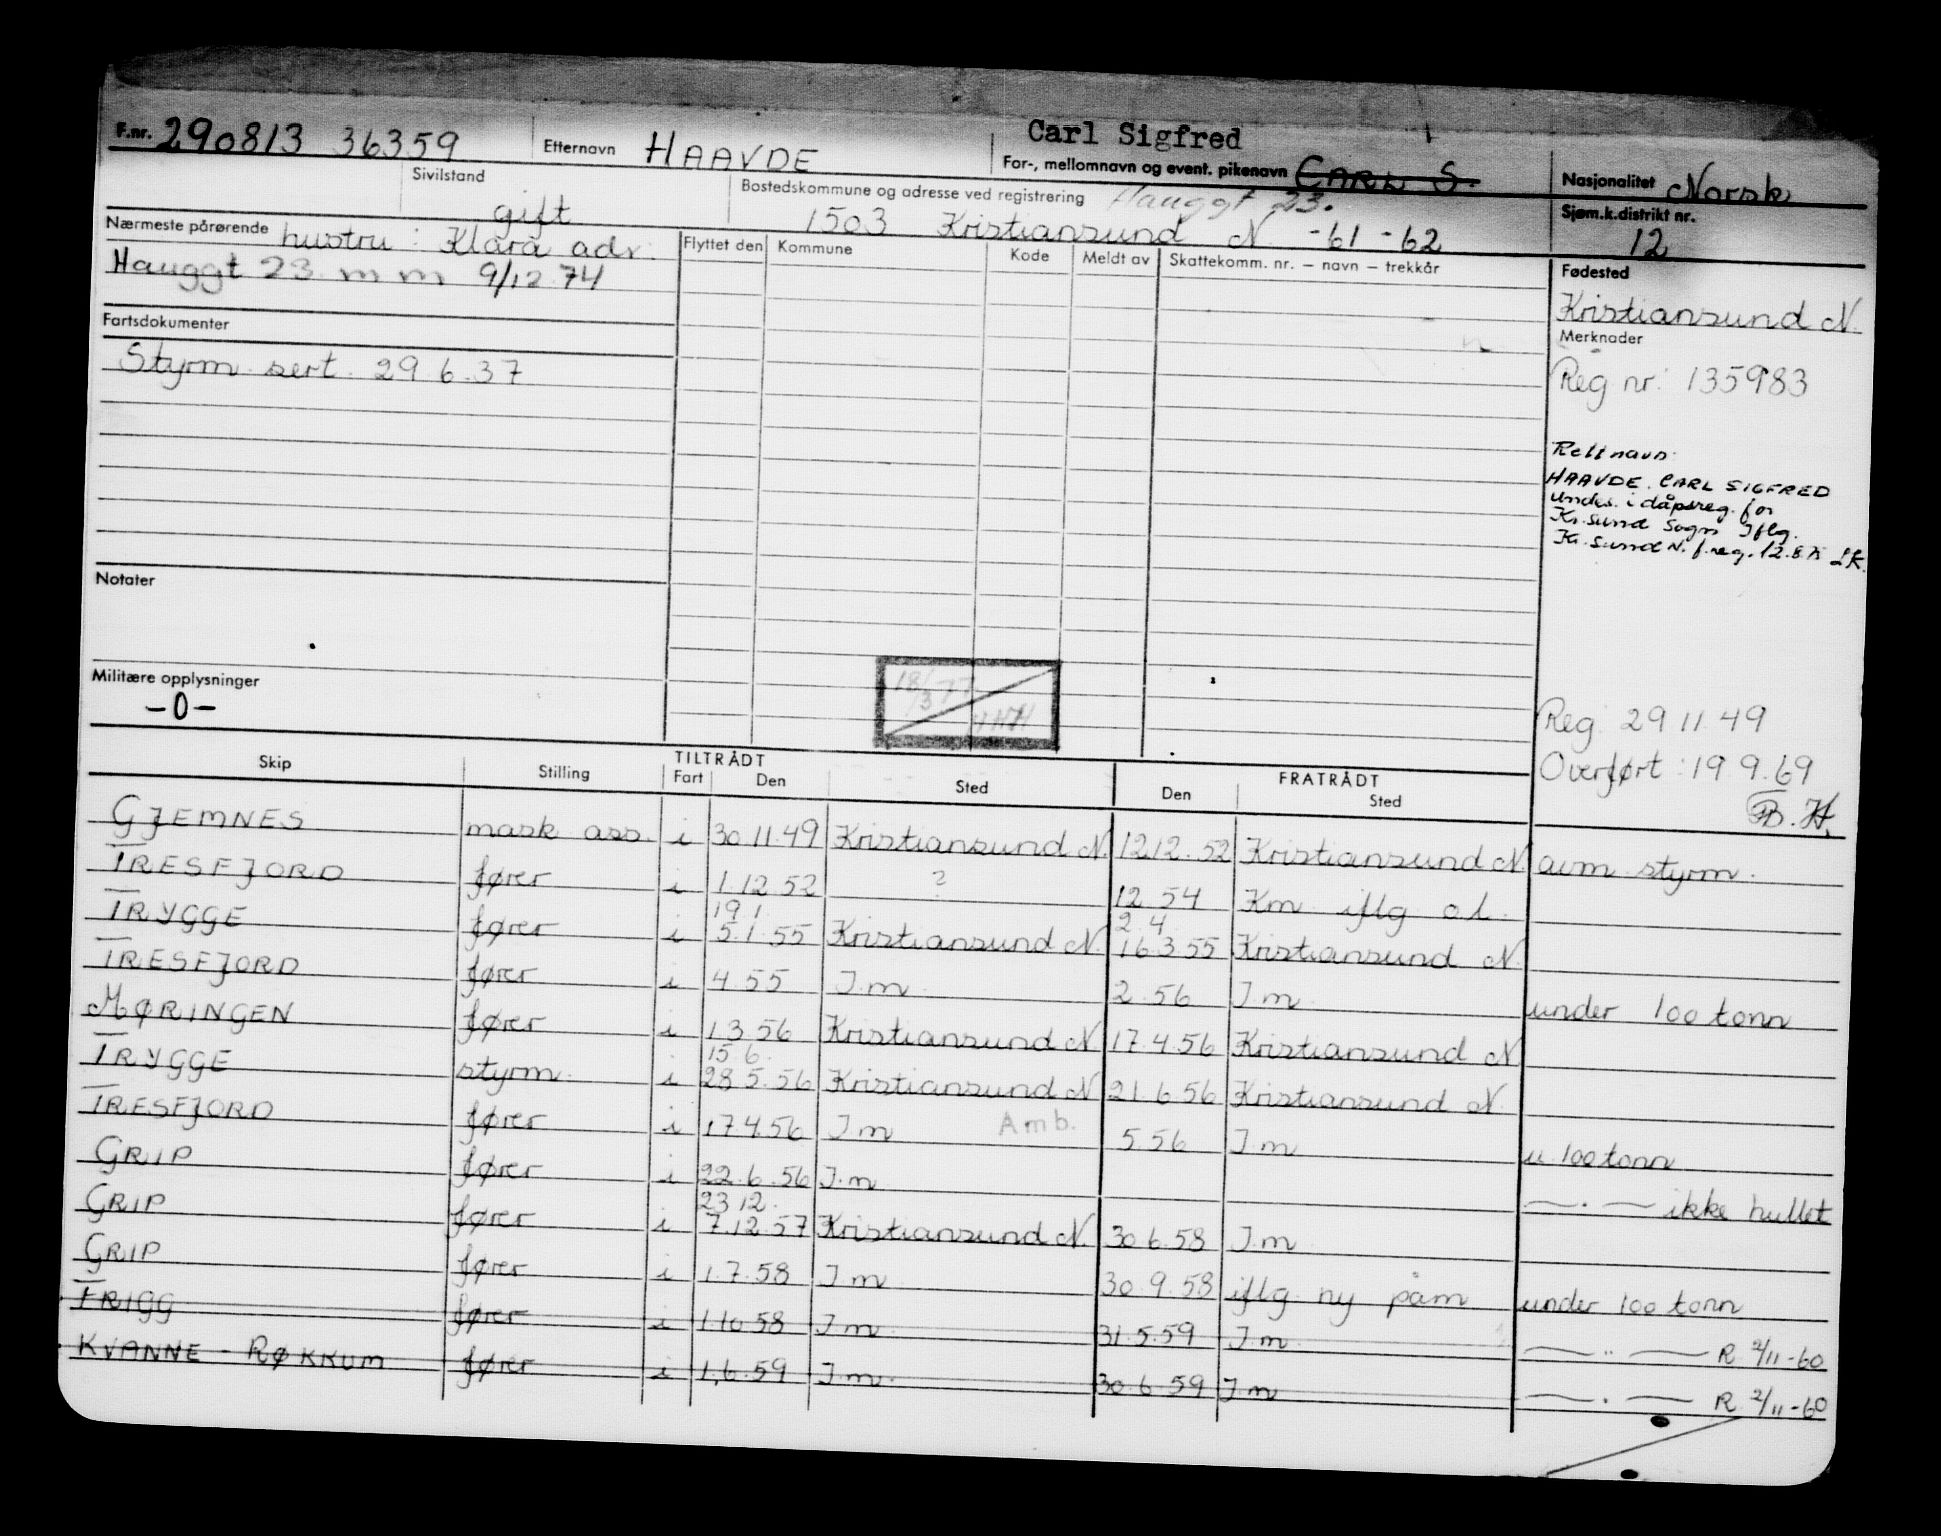 Carl Sigfred
F.nr. 290813 36359 Etternavn HAAVDE For-, mellomnavn og event. pikenavn CARL S. Nasjonalitet Norsk
Sivilstand gift Bostedskommune og adresse ved registrering Hauggt 23. 1503 Kristiansund N -61 -62 Sjøm.k.distrikt nr. 12
Nærmeste pårørende hustru: Klara adr.
Hauggt 23 m m 9/12.74
Flyttet den Kommune Kode Meldt av Skattekomm. nr. – navn – trekkår
Fødested
Kristiansund N.
Fartsdokumenter
Styrm. sert. 29.6.37
Merknader
Reg nr: 135983
Rett navn:
HAAVDE. CARL SIGFRED
undes. i dåpsreg. for
Kr.sund Sogn Iflg.
Kr.sund N. f.reg. 12.8.
Notater
Militære opplysninger
-0-
18/3 77
Reg. 29 11 49
Overført: 19.9.69
B.H.
TILTRÅDT FRATRÅDT
Skip Stilling Fart Den Sted Den Sted
GJEMNES mask ass. i 30.11.49 Kristiansund N. 12.12.52 Kristiansund N. avm styrm.
TRESFJORD fører i 1.12.52 ? 12.54 Km iflg o.l.
19.1. 2.4
TRYGGE fører i 5.1.55 Kristiansund N. 16.3.55 Kristiansund N.
TRESFJORD fører i 4.55 I.m. 2.56 I.m. under 100 tonn
MØRINGEN fører i 1.3.56 Kristiansund N. 17.4.56 Kristiansund N
15.6.
TRYGGE styrm. i 28.5.56 Kristiansund N 21.6.56 Kristiansund N.
TRESFJORD fører i 17.4.56 I m Amb. 5.56 I.m u. 100 tonn
GRIP fører i 22.6.56 I.m. —.— ikke hullet
23.12.
GRIP fører i 7.12.57 Kristiansund N. 30.6.58 I.m
GRIP fører i 1.7.58 I.m 30.9.58 iflg. ny påm under 100 tonn
FRIGG fører i 1.10.58 I.m. 31.5.59 I.m. —"— R 2/11-60
KVANNE - RØKKUM fører i 1.6.59 I.m. 30.6.59 I.m —.— R 2/11-60